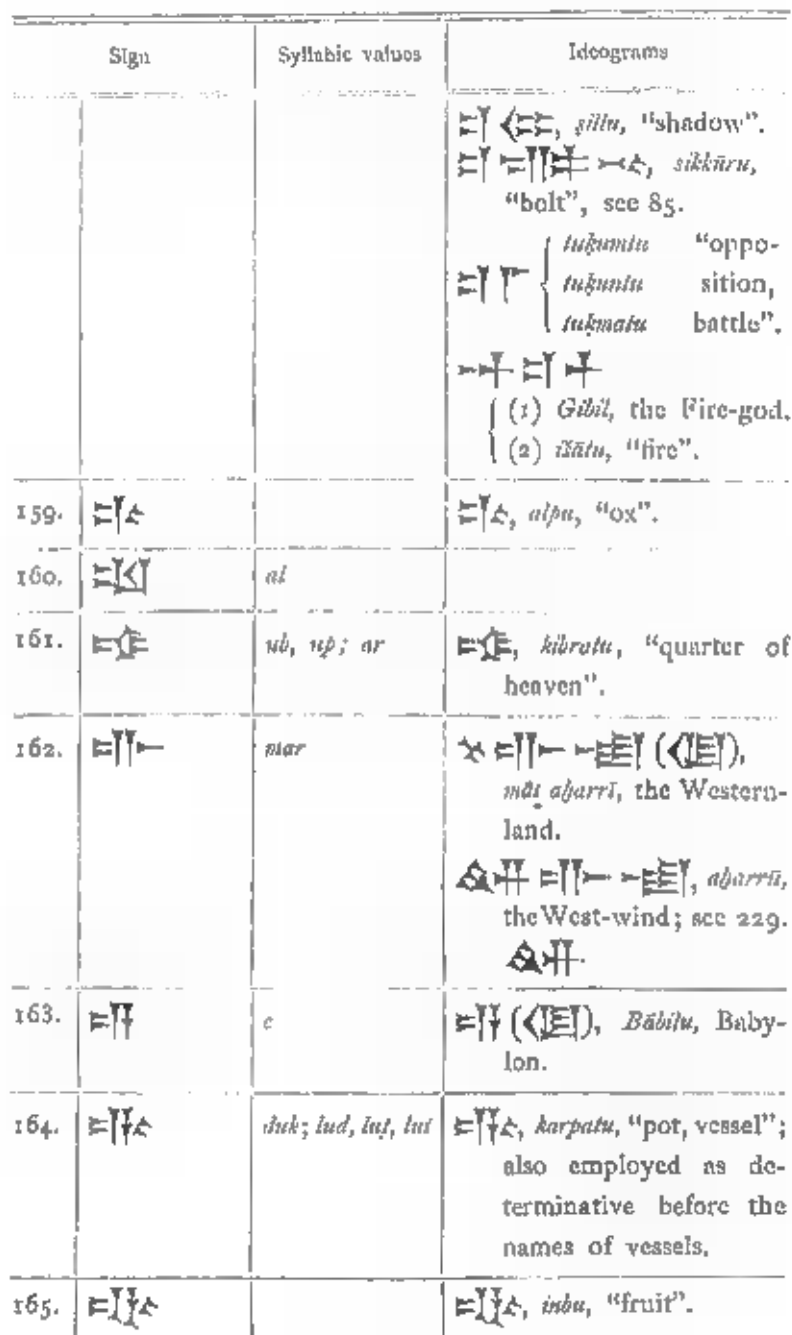 Sign Syllabic values Ideograms
𒄑𒈪, ṣillu, "shadow".
𒄑𒊕𒆰, sikkūru,
"bolt", see 85.
tuḳumtu "oppo-
𒄑𒇲 tuḳuntu sition,
tuḳmatu battle".
𒀭𒄑𒁇
(1) Gibil, the Fire-god.
(2) išātu, "fire".
159. 𒄞 𒄞, alpu, "ox".
160. 𒀠 al
161. 𒌒 ub, up; ar 𒌒, kibratu, "quarter of
heaven".
162. 𒈥 mar 𒆳𒈥𒌅(𒆠),
māṭ aḫarrī, the Western-
land.
𒅎𒈥𒌅, aḫarrū,
the West-wind; see 229.
𒅎.
163. 𒂊 e 𒂊(𒆠), Bābilu, Baby-
lon.
164. 𒂁 duk; lud, luṭ, lut 𒂁, karpatu, "pot, vessel";
also employed as de-
terminative before the
names of vessels.
165. inbu, "fruit".